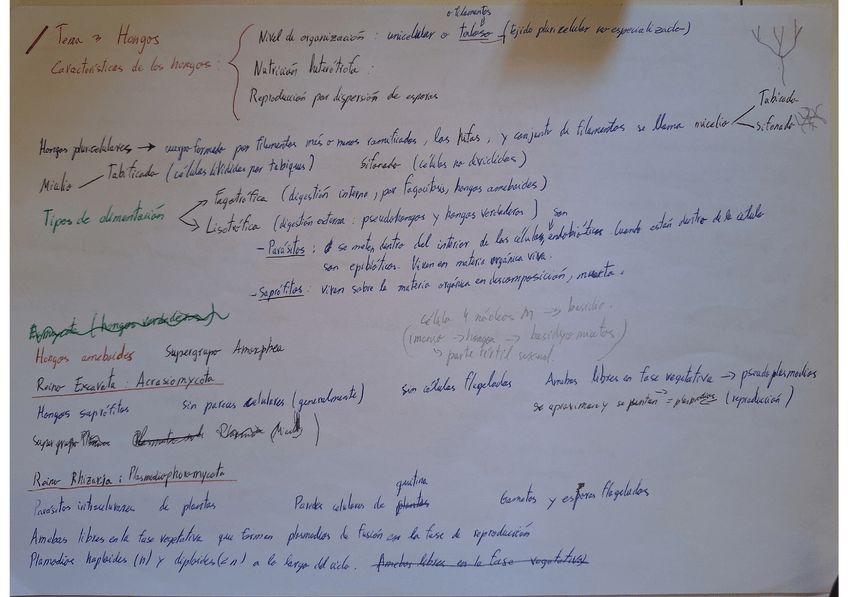 Tema 3 Hongos
Características de los hongos :
o filamentos
Nivel de organización : unicelular o taloso (tejido pluricelular no especializado)
Nutrición heterótrofa :
Reproducción por dispersión de esporas
Hongos pluricelulares → cuerpo formado por filamentos más o menos ramificados, las hifas, y conjunto de filamentos se llama micelio
Tabicado
sifonado
Micelio Tabificado (células divididas por tabiques) Sifonado (células no divididas)
Tipos de alimentación
Fagotrófica (digestión interna, por fagocitosis, hongos ameboides)
Lisotrófica (digestión externa : pseudohongos y hongos verdaderos)
- Parásitos : se meten dentro del interior de las células, son endobióticos. Cuando están dentro de la célula
son epibióticos. Viven en materia orgánica viva.
- Saprófitos : viven sobre la materia orgánica en descomposición, muerta.
(hongos verdaderos)
célula 4 núcleos M → basidio.
→ basidiomicetos
→ parte fértil sexual
Hongos ameboides Supergrupo Amorphea
Reino Excavata : Acrasiomycota
Hongos saprófitos sin paredes celulares (generalmente) sin células flageladas Amebas libres en fase vegetativa → pseudoplasmodios
se aproximan y se juntan = (reproducción)
Supergrupo
Reino Rhizaria : Plasmodiophoromycota
Parásitos intracelulares de plantas Paredes celulares de plantas quitina Gametos y esporas flagelados
Amebas libres en la fase vegetativa que forman plasmodios de fusión en la fase de reproducción
Plamodios haploides (n) y diploides (2n) a lo largo del ciclo. Amebas libres en la fase vegetativa